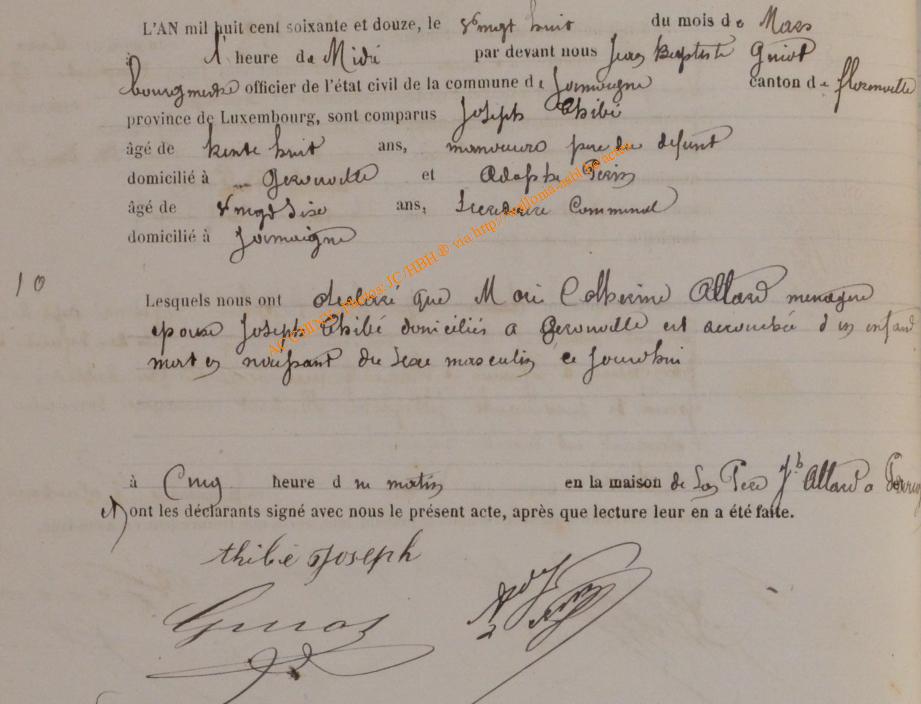 L'AN mil huit cent soixante et douze, le vingt huit du mois de Mars
à l' heure de Midi par devant nous Jean Baptiste Guiot
bourgmestre officier de l'état civil de la commune de Jamoigne canton de florenville
province de Luxembourg, sont comparus Joseph Thibé
âgé de trente huit ans, manoeuvre père du défunt
domicilié à Gerouville et Adolphe Perin
âgé de vingt Six ans, Secretaire Communal
domicilié à Jamoigne
10
Lesquels nous ont déclaré que Marie Catherine Allard menagère
epouse Joseph Thibé domiciliés a Gerouville est accouchée d'un enfant
mort en naissant du sexe masculin ce jourdhui
à Cinq heure du matin en la maison de Son Père Jb Allard a
et ont les déclarants signé avec nous le présent acte, après que lecture leur en a été faite.
thibé Joseph
Guiot